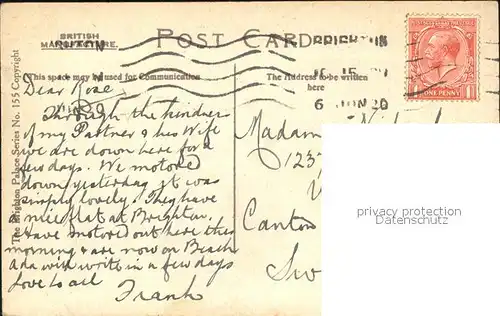 BRITISH
MANUFACTURE.
POST CARD
BRIGHTON
6 JUN 20
This space may be used for Communication
The Address to be written
here
ONE PENNY
The Brighton Palace Series No. 155 Copyright
Dear Rose
Through the kindness
of my Partner & his Wife
we are down here for a
few days. We motored
down yesterday it was
simply lovely. They have
a nice flat at Brighton.
Have motored out here this
morning & are now on Beach
Ada will write in a few days
Love to all
Frank
Madam
Canton
privacy protection
Datenschutz